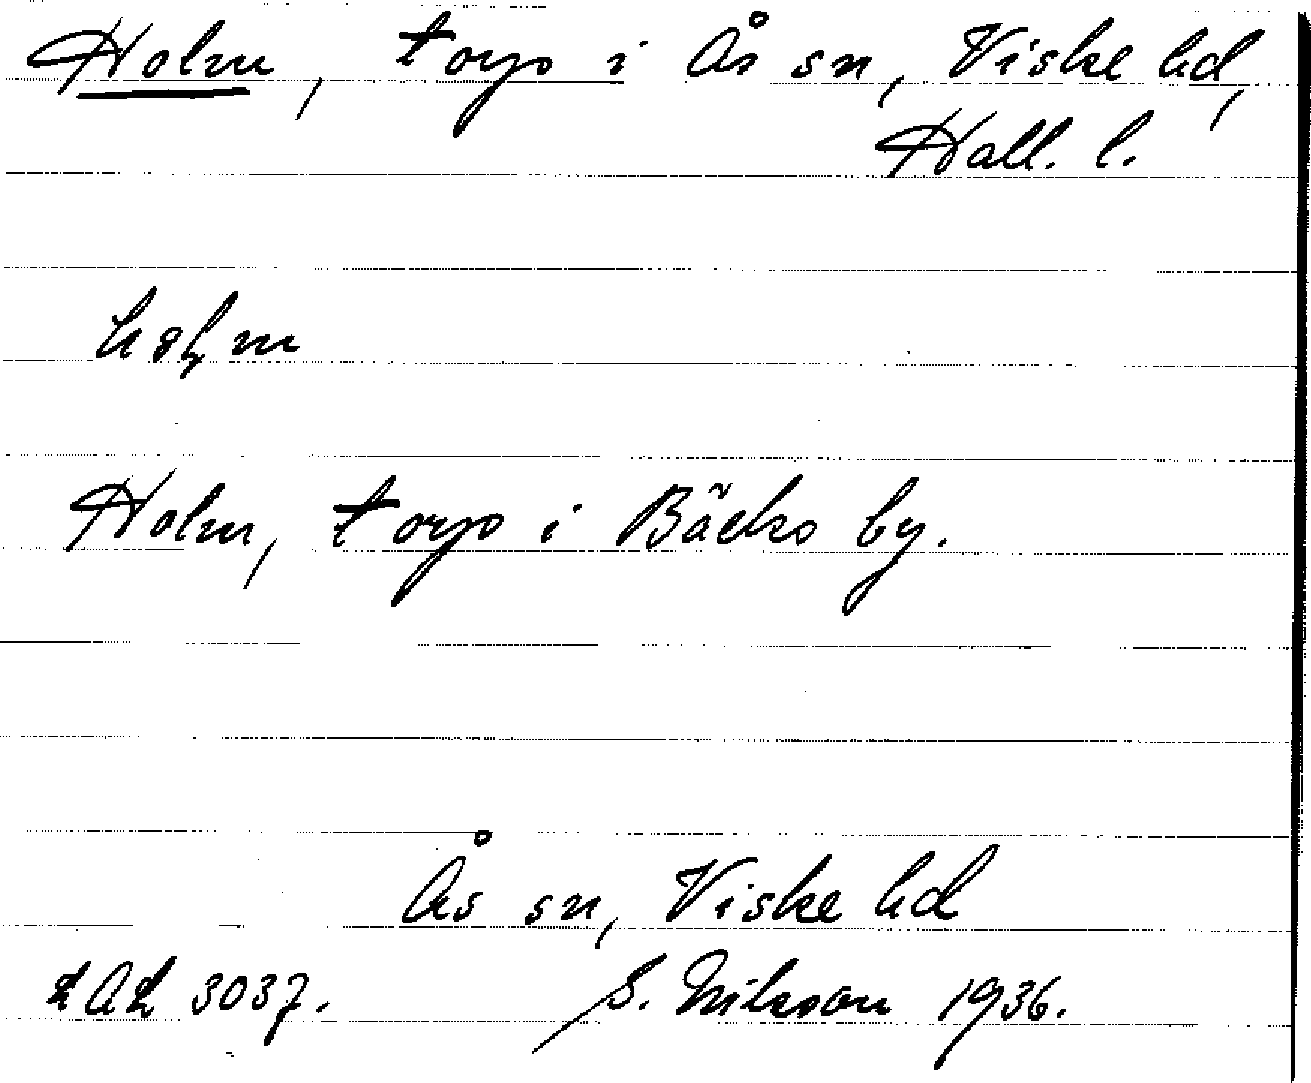 Holm, torp i Ås sn, Viske hd,
Hall. l.
Holm, torp i Bäcks by.
Ås sn, Viske hd
LAL 3037. S. Nilsson 1936.